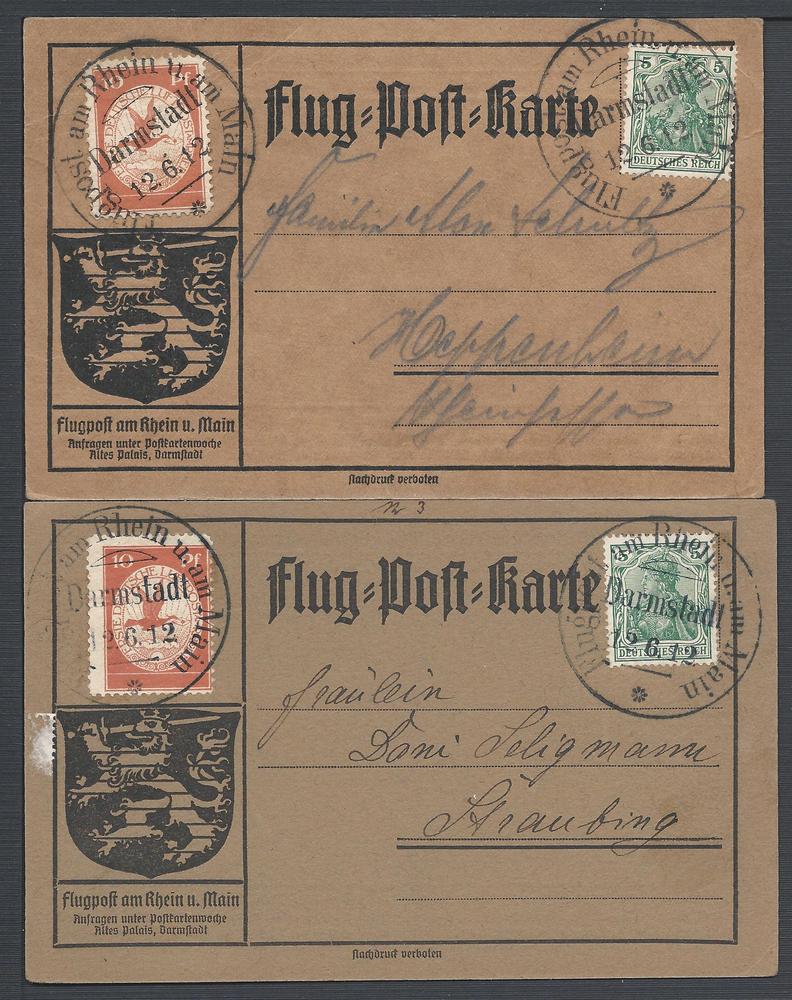 Flugpost am Rhein u. am Main
Darmstadt
12.6.12
Pf
Flug=Post=Karte
Flugpost am Rhein u. am Main
Darmstadt
12.6.12
5 5
DEUTSCHES REICH
Familie Max Schultz
Heppenheim
Rheinhessen
Flugpost am Rhein u. Main
Anfragen unter Postkartenwoche
Altes Palais, Darmstadt
Nachdruck verboten
No 3
am Rhein u. am Main
Darmstadt
12.6.12
10 Pf
Flug=Post=Karte
Flugpost am Rhein u. am Main
Darmstadt
6.12
DEUTSCHES REICH
Fräulein
Doni Seligmann
Straubing
Flugpost am Rhein u. Main
Anfragen unter Postkartenwoche
Altes Palais, Darmstadt
Nachdruck verboten